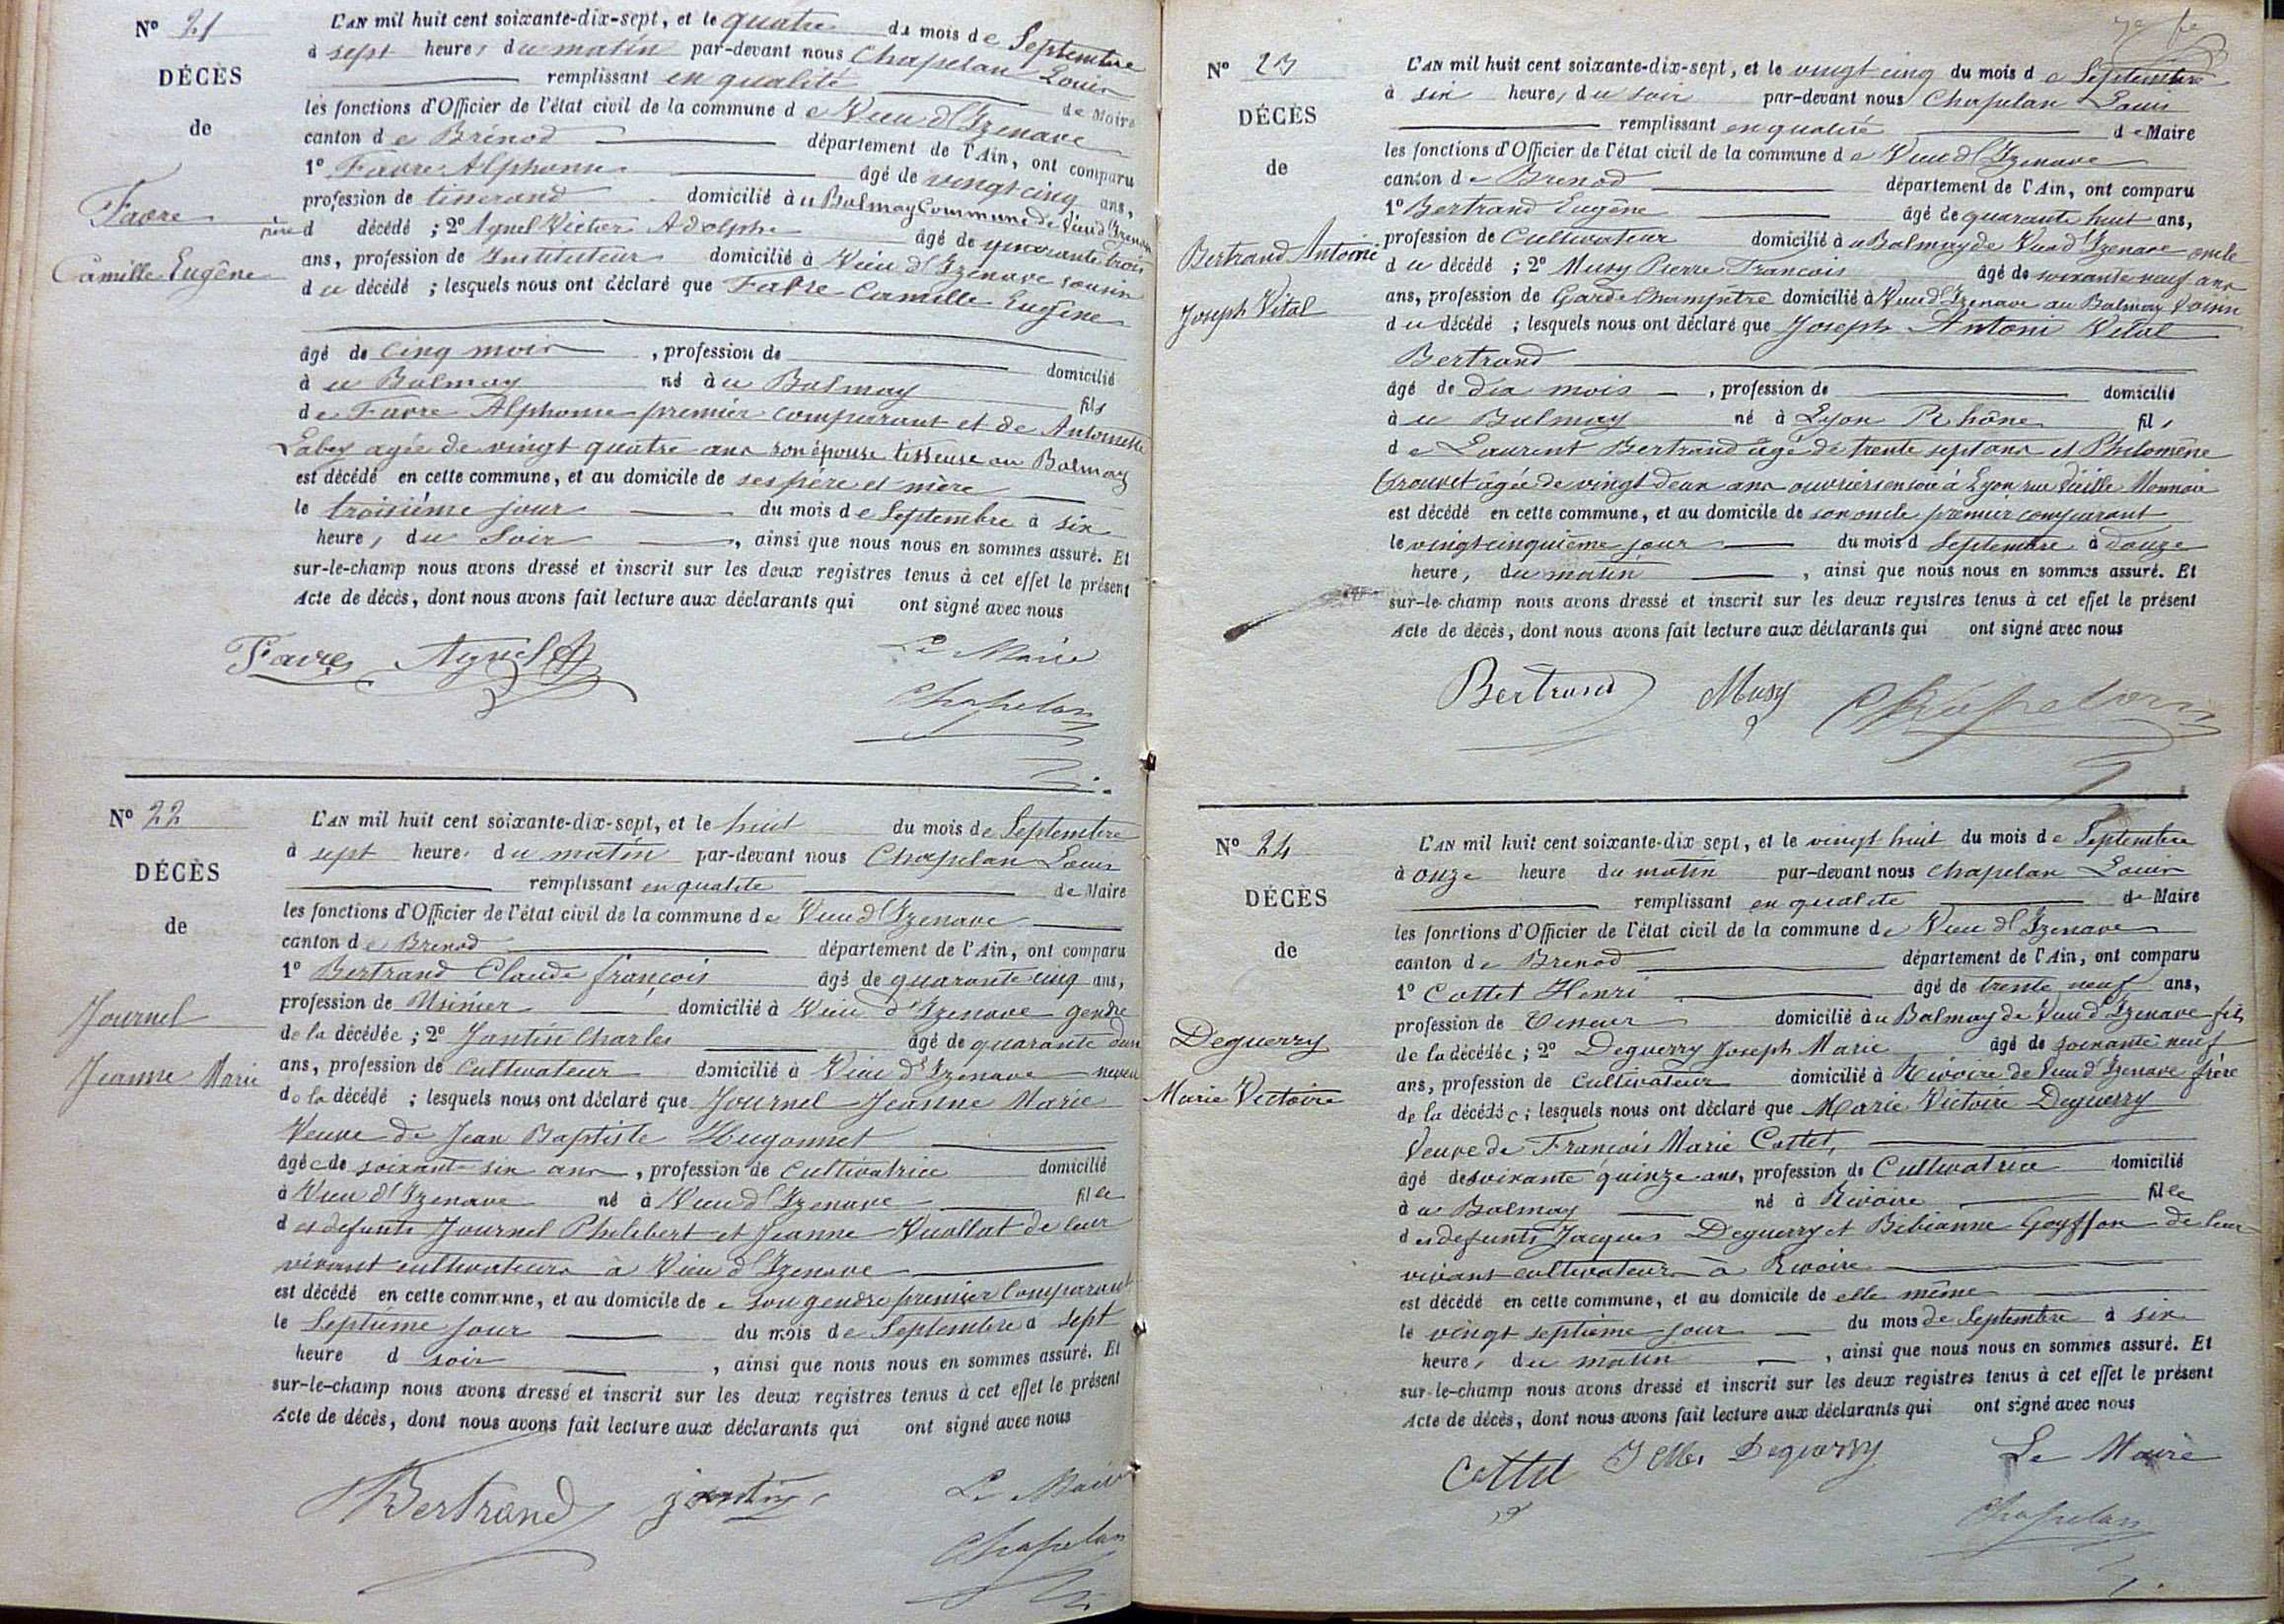 N° 21
DÉCÈS
de
Favre
Camille Eugène
L'AN mil huit cent soixante-dix-sept, et le quatre du mois de Septembre
à sept heures du matin par-devant nous Chapelan Louis
remplissant en qualité de Maire
les fonctions d'Officier de l'état civil de la commune de Vieu d'Izenave
canton de Brénod département de l'Ain, ont comparu
1° Favre Alphonse âgé de vingt cinq ans,
profession de tisserand domicilié à u Balmay Commune de Vieu d'Izenave
père d décédé ; 2° Agnel Victor Adolphe âgé de quarante trois
ans, profession de Instituteur domicilié à Vieu d'Izenave voisin
du décédé ; lesquels nous ont déclaré que Favre Camille Eugène
âgé de cinq mois , profession de domicilié
à u Balmay né à u Balmay fils
de Favre Alphonse premier comparant et de Antoinette
Labey agée de vingt quatre ans son épouse tisseuse au Balmay
est décédé en cette commune, et au domicile de ses père et mère
le troisième jour du mois de Septembre à six
heures du Soir , ainsi que nous nous en sommes assuré. Et
sur-le-champ nous avons dressé et inscrit sur les deux registres tenus à cet effet le présent
Acte de décès, dont nous avons fait lecture aux déclarants qui ont signé avec nous
Favre Agnel Le Maire
Chapelan
N° 22
DÉCÈS
de
Journel
Jeanne Marie
L'AN mil huit cent soixante-dix-sept, et le huit du mois de Septembre
à sept heures du matin par-devant nous Chapelan Louis
remplissant en qualité de Maire
les fonctions d'Officier de l'état civil de la commune de Vieu d'Izenave
canton de Brenod département de l'Ain, ont comparu
1° Bertrand Claude françois âgé de quarante cinq ans,
profession de Usinier domicilié à Vieu d'Izenave gendre
de la décédée ; 2° Jantin Charles âgé de quarante deux
ans, profession de Cultivateur domicilié à Vieu d'Izenave neveu
de la décédé ; lesquels nous ont déclaré que Journel Jeanne Marie
Veuve de Jean Baptiste Hugonnet
âgée de soixante six ans , profession de Cultivatrice domicilié
à Vieu d'Izenave né à Vieu d'Izenave fille
des defunts Journel Philibert et Jeanne Vuollat de leur
vivant cultivateurs à Vieu d'Izenave
est décédé en cette commune, et au domicile de son gendre premier Comparant
le Septième jour du mois de Septembre à sept
heure d soir , ainsi que nous nous en sommes assuré. Et
sur-le-champ nous avons dressé et inscrit sur les deux registres tenus à cet effet le présent
Acte de décès, dont nous avons fait lecture aux déclarants qui ont signé avec nous
Bertrand jantin Le Maire
Chapelan
N° 23
DÉCÈS
de
Bertrand Antoine
Joseph Vital
L'AN mil huit cent soixante-dix-sept, et le vingt cinq du mois de Septembre
à six heures du soir par-devant nous Chapelan Louis
remplissant en qualité de Maire
les fonctions d'Officier de l'état civil de la commune de Vieu d'Izenave
canton de Brenod département de l'Ain, ont comparu
1° Bertrand Eugène âgé de quarante huit ans,
profession de Cultivateur domicilié à u Balmay de Vieu d'Izenave oncle
du décédé ; 2° Musy Pierre François âgé de soixante neuf ans
ans, profession de Garde Champêtre domicilié à Vieu d'Izenave au Balmay Voisin
du décédé ; lesquels nous ont déclaré que Joseph Antoni Vital
Bertrand
âgé de dix mois , profession de domicilié
à u Balmay né à Lyon Rhône fils
de Laurent Bertrand âgé de trente sept ans et Philomène
âgée de vingt deux ans ouvriers en soie à Lyon rue Vieille Monnaie
est décédé en cette commune, et au domicile de son oncle premier comparant
le vingt cinquième jour du mois d Septembre à Douze
heure, du matin , ainsi que nous nous en sommes assuré. Et
sur-le-champ nous avons dressé et inscrit sur les deux registres tenus à cet effet le présent
Acte de décès, dont nous avons fait lecture aux déclarants qui ont signé avec nous
Bertrand Musy Chapelan
N° 24
DÉCÈS
de
Deguerry
Marie Victoire
L'AN mil huit cent soixante-dix-sept, et le vingt huit du mois de Septembre
à onze heure du matin par-devant nous Chapelan Louis
remplissant en qualité de Maire
les fonctions d'Officier de l'état civil de la commune de Vieu d'Izenave
canton de Brenod département de l'Ain, ont comparu
1° Cottet Henri âgé de trente neuf ans,
profession de Tisseur domicilié à u Balmay de Vieu d'Izenave fils
de la décédée ; 2° Deguerry Joseph Marie âgé de soixante neuf
ans, profession de Cultivateur domicilié à Rivoire de Vieu d'Izenave frère
de la décédée ; lesquels nous ont déclaré que Marie Victoire Deguerry
Veuve de François Marie Cottet,
âgé de soixante quinze ans, profession de Cultivatrice domicilié
à u Balmay né à Rivoire fille
des defunts Jacques Deguerry et Bibianne Goyffon de leur
vivant cultivateurs à Rivoire
est décédé en cette commune, et au domicile de elle même
le vingt septième jour du mois de Septembre à six
heures du matin , ainsi que nous nous en sommes assuré. Et
sur-le-champ nous avons dressé et inscrit sur les deux registres tenus à cet effet le présent
Acte de décès, dont nous avons fait lecture aux déclarants qui ont signé avec nous
Cottet Deguerry Le Maire
Chapelan